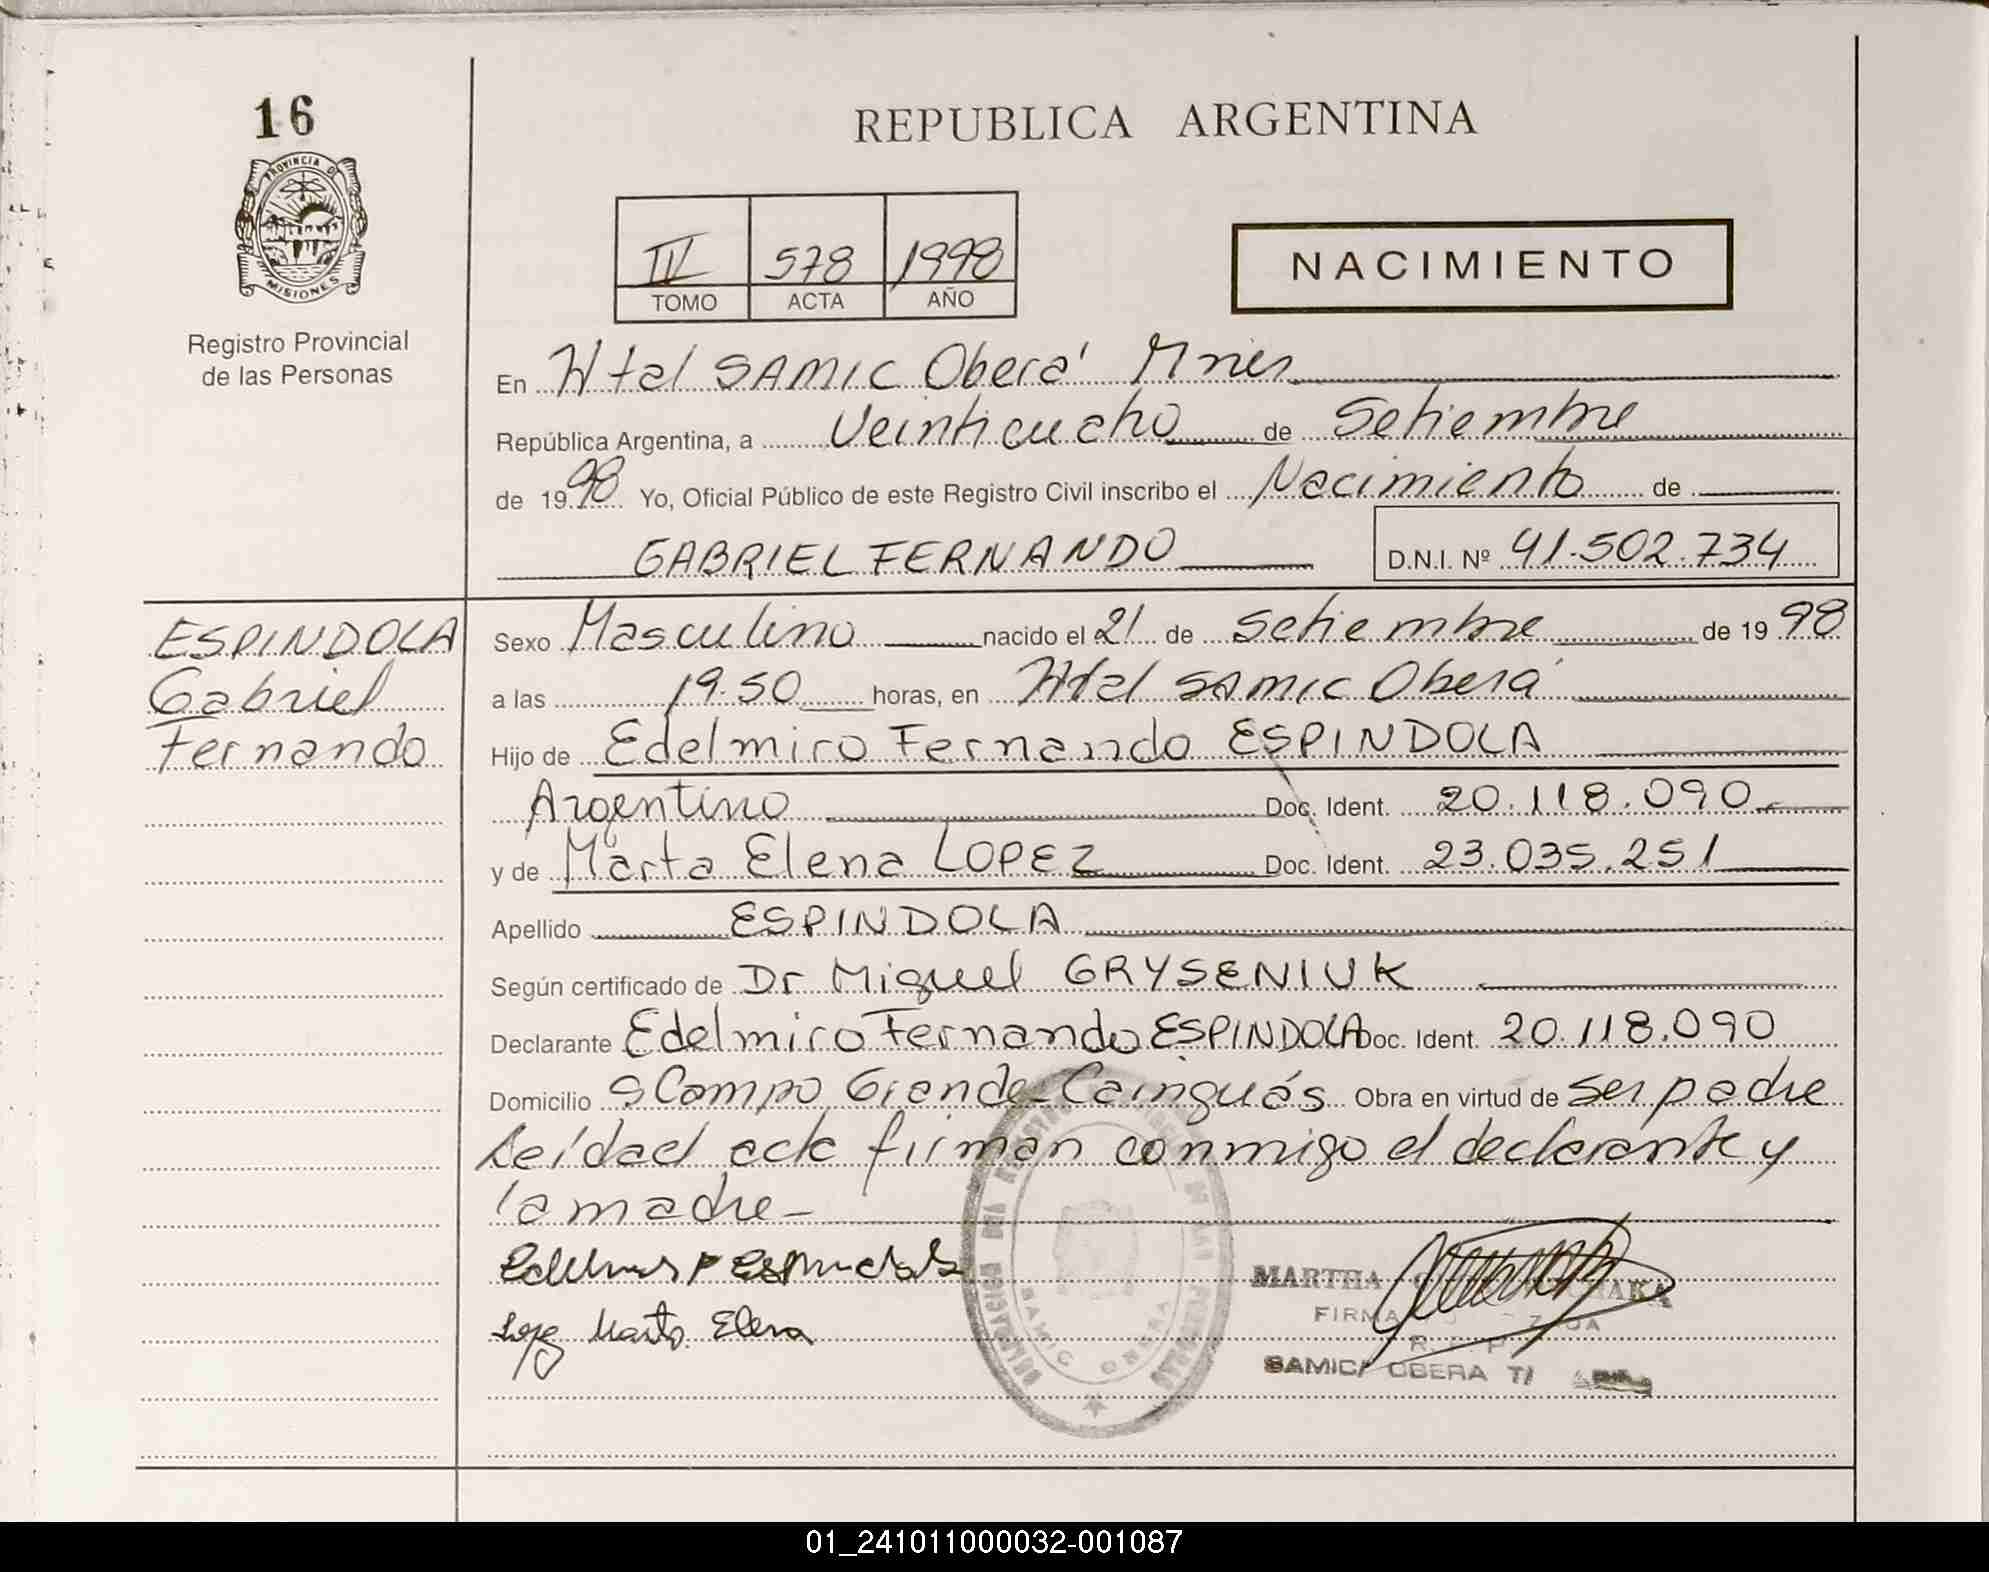 16
PROVINCIA DE
MISIONES
Registro Provincial
de las Personas
REPUBLICA ARGENTINA
IV 578 1998
TOMO ACTA AÑO
NACIMIENTO
En Htal SAMIC Oberá Mnes
República Argentina, a Veinticuatro de Setiembre
de 19 98 Yo, Oficial Público de este Registro Civil inscribo el Nacimiento de
GABRIEL FERNANDO D.N.I. Nº 41.502.734
ESPINDOLA
Gabriel
Fernando
Sexo Masculino nacido el 21 de Setiembre de 19 98
a las 19.50 horas, en Htal SAMIC Oberá
Hijo de Edelmiro Fernando ESPINDOLA
Argentino Doc. Ident. 20.118.090
y de Marta Elena LOPEZ Doc. Ident. 23.035.251
Apellido ESPINDOLA
Según certificado de Dr Miguel GRYSENIUK
Declarante Edelmiro Fernando ESPINDOLA Doc. Ident. 20.118.090
Domicilio Campo Grande-Cainguás Obra en virtud de ser padre
Leída el acta firman conmigo el declarante y
la madre-
Lopez Marta Elena
MARTHA
FIRMA
R. P. P.
SAMIC OBERA
SAMIC OBERA
01_241011000032-001087